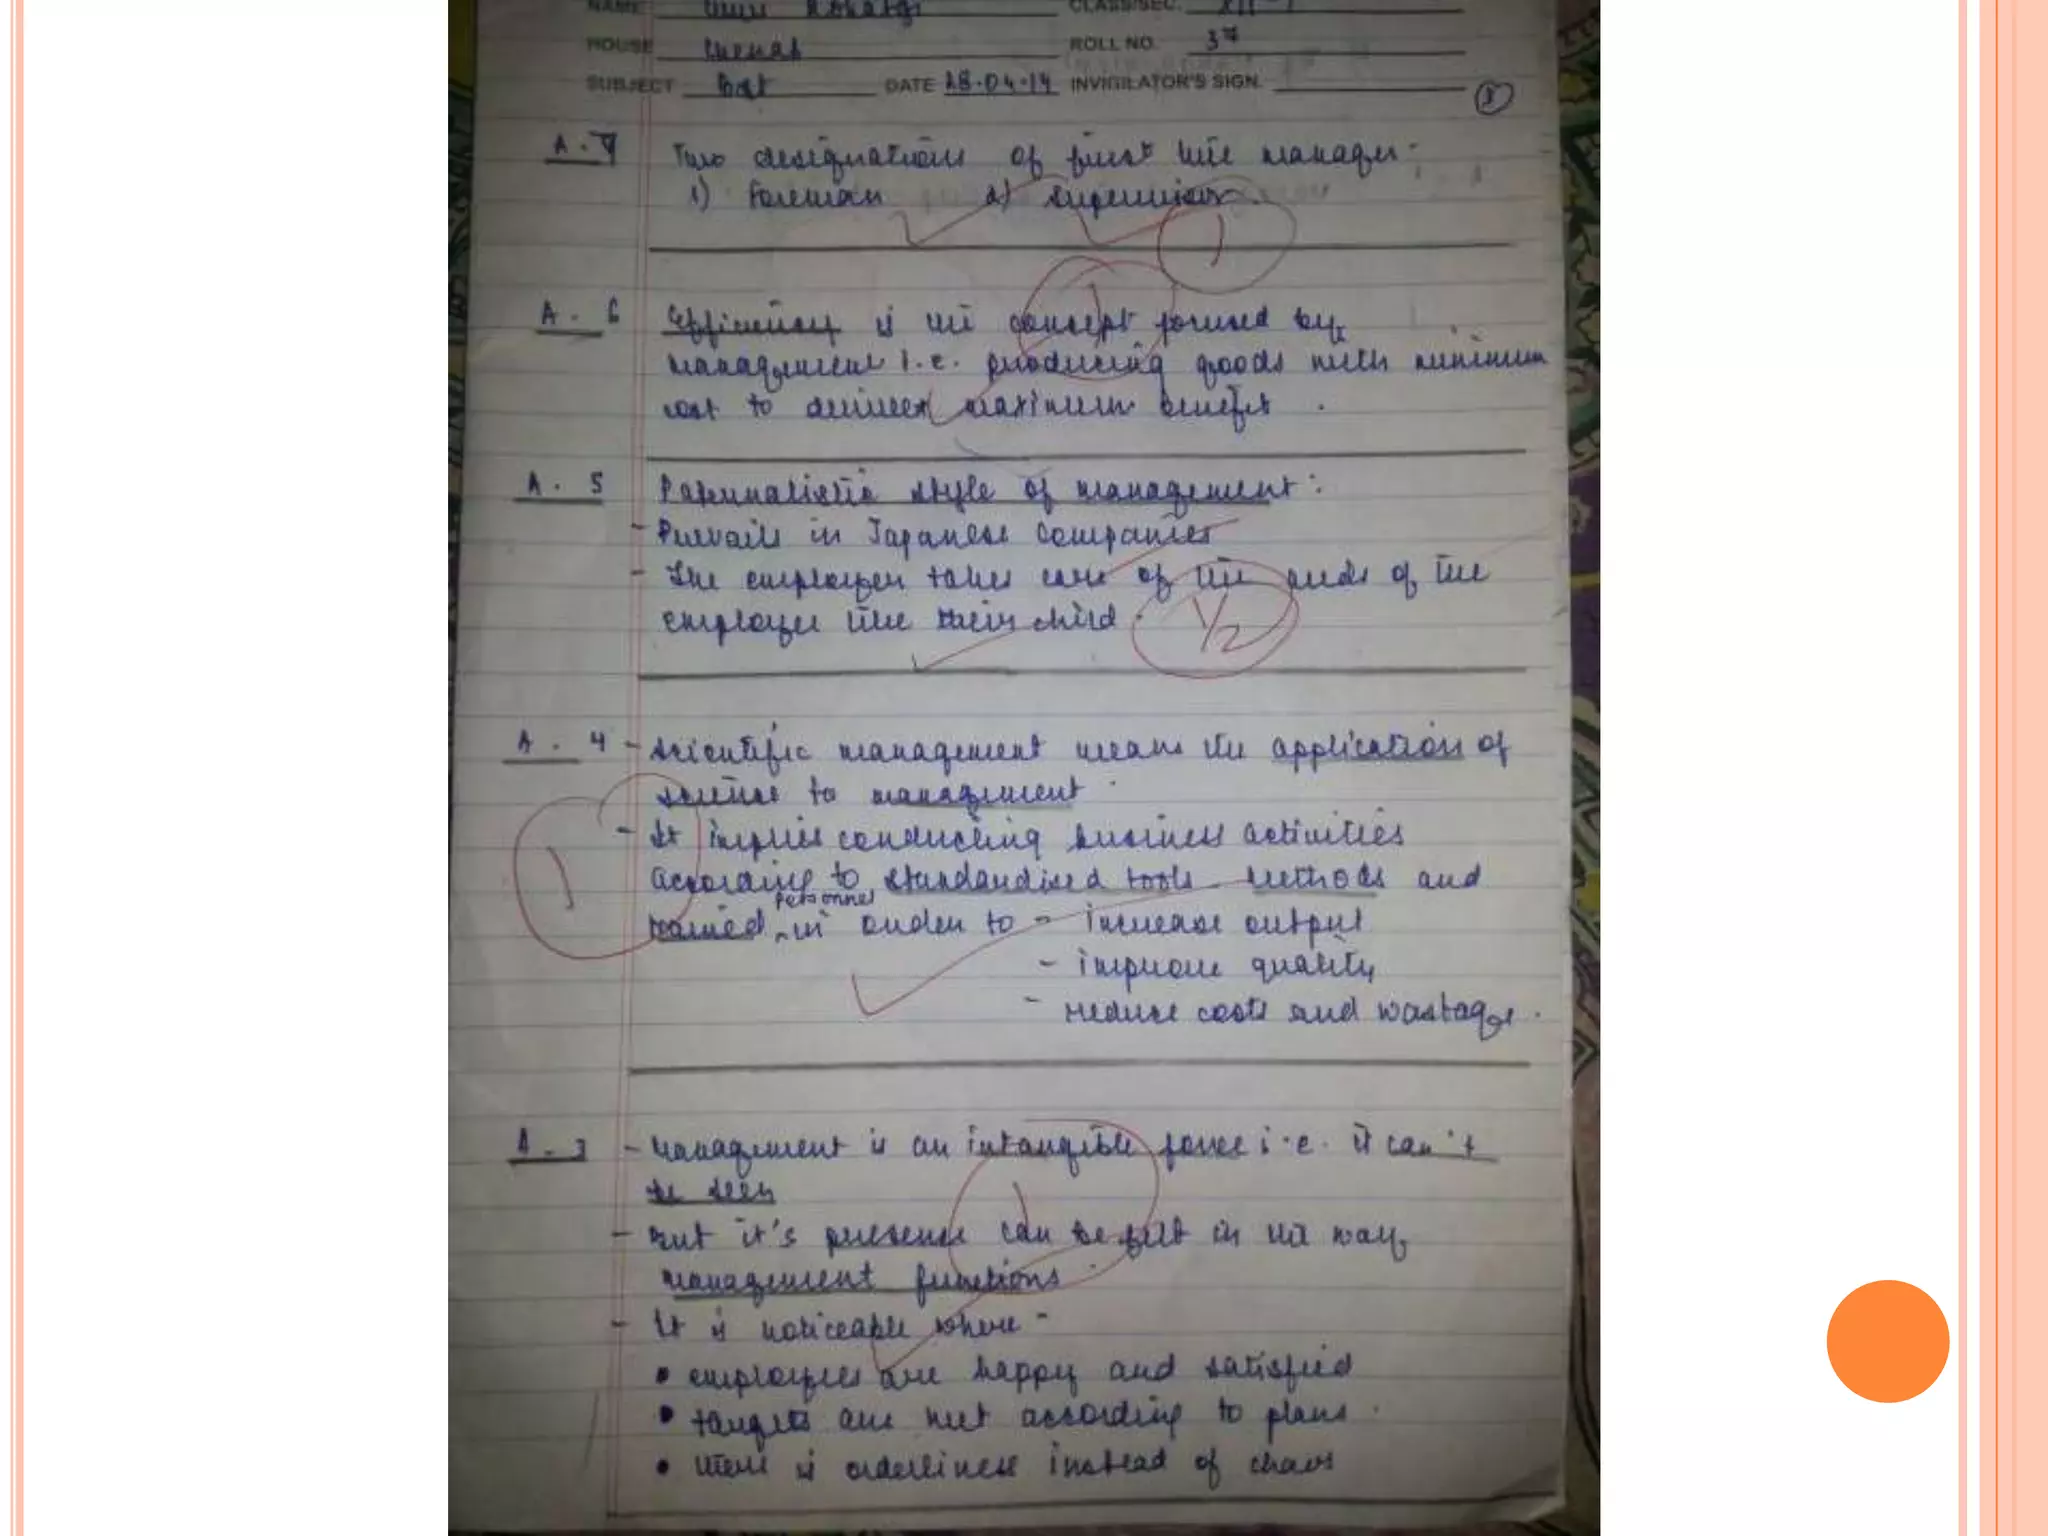 NAME CLASS/SEC. XII-
HOUSE Chenab ROLL NO. 37
SUBJECT Bst DATE 28.04.14 INVIGILATOR'S SIGN.
A. 7 Two designations of first line manager:
1) Foreman 2) Supervisor.
1
A. 6 Efficiency is the concept focused by
1
management i.e. producing goods with minimum
cost to derive maximum benefit.
A. 5 Paternalistic style of management:
- Prevails in Japanese Companies
- The employer takes care of the needs of the
employee like their child.
1/2
A. 4 - Scientific management means the application of
science to management.
- It implies conducting business activities
1
according to standardised tools methods and
trained personnel in order to - increase output
- improve quality
- reduce costs and wastage.
A. 3 - Management is an intangible force i.e. it can't
be seen
1
- But it's presence can be felt in the way
management functions.
- It is noticeable where -
• employees are happy and satisfied
• targets are met according to plans.
• there is orderliness instead of chaos